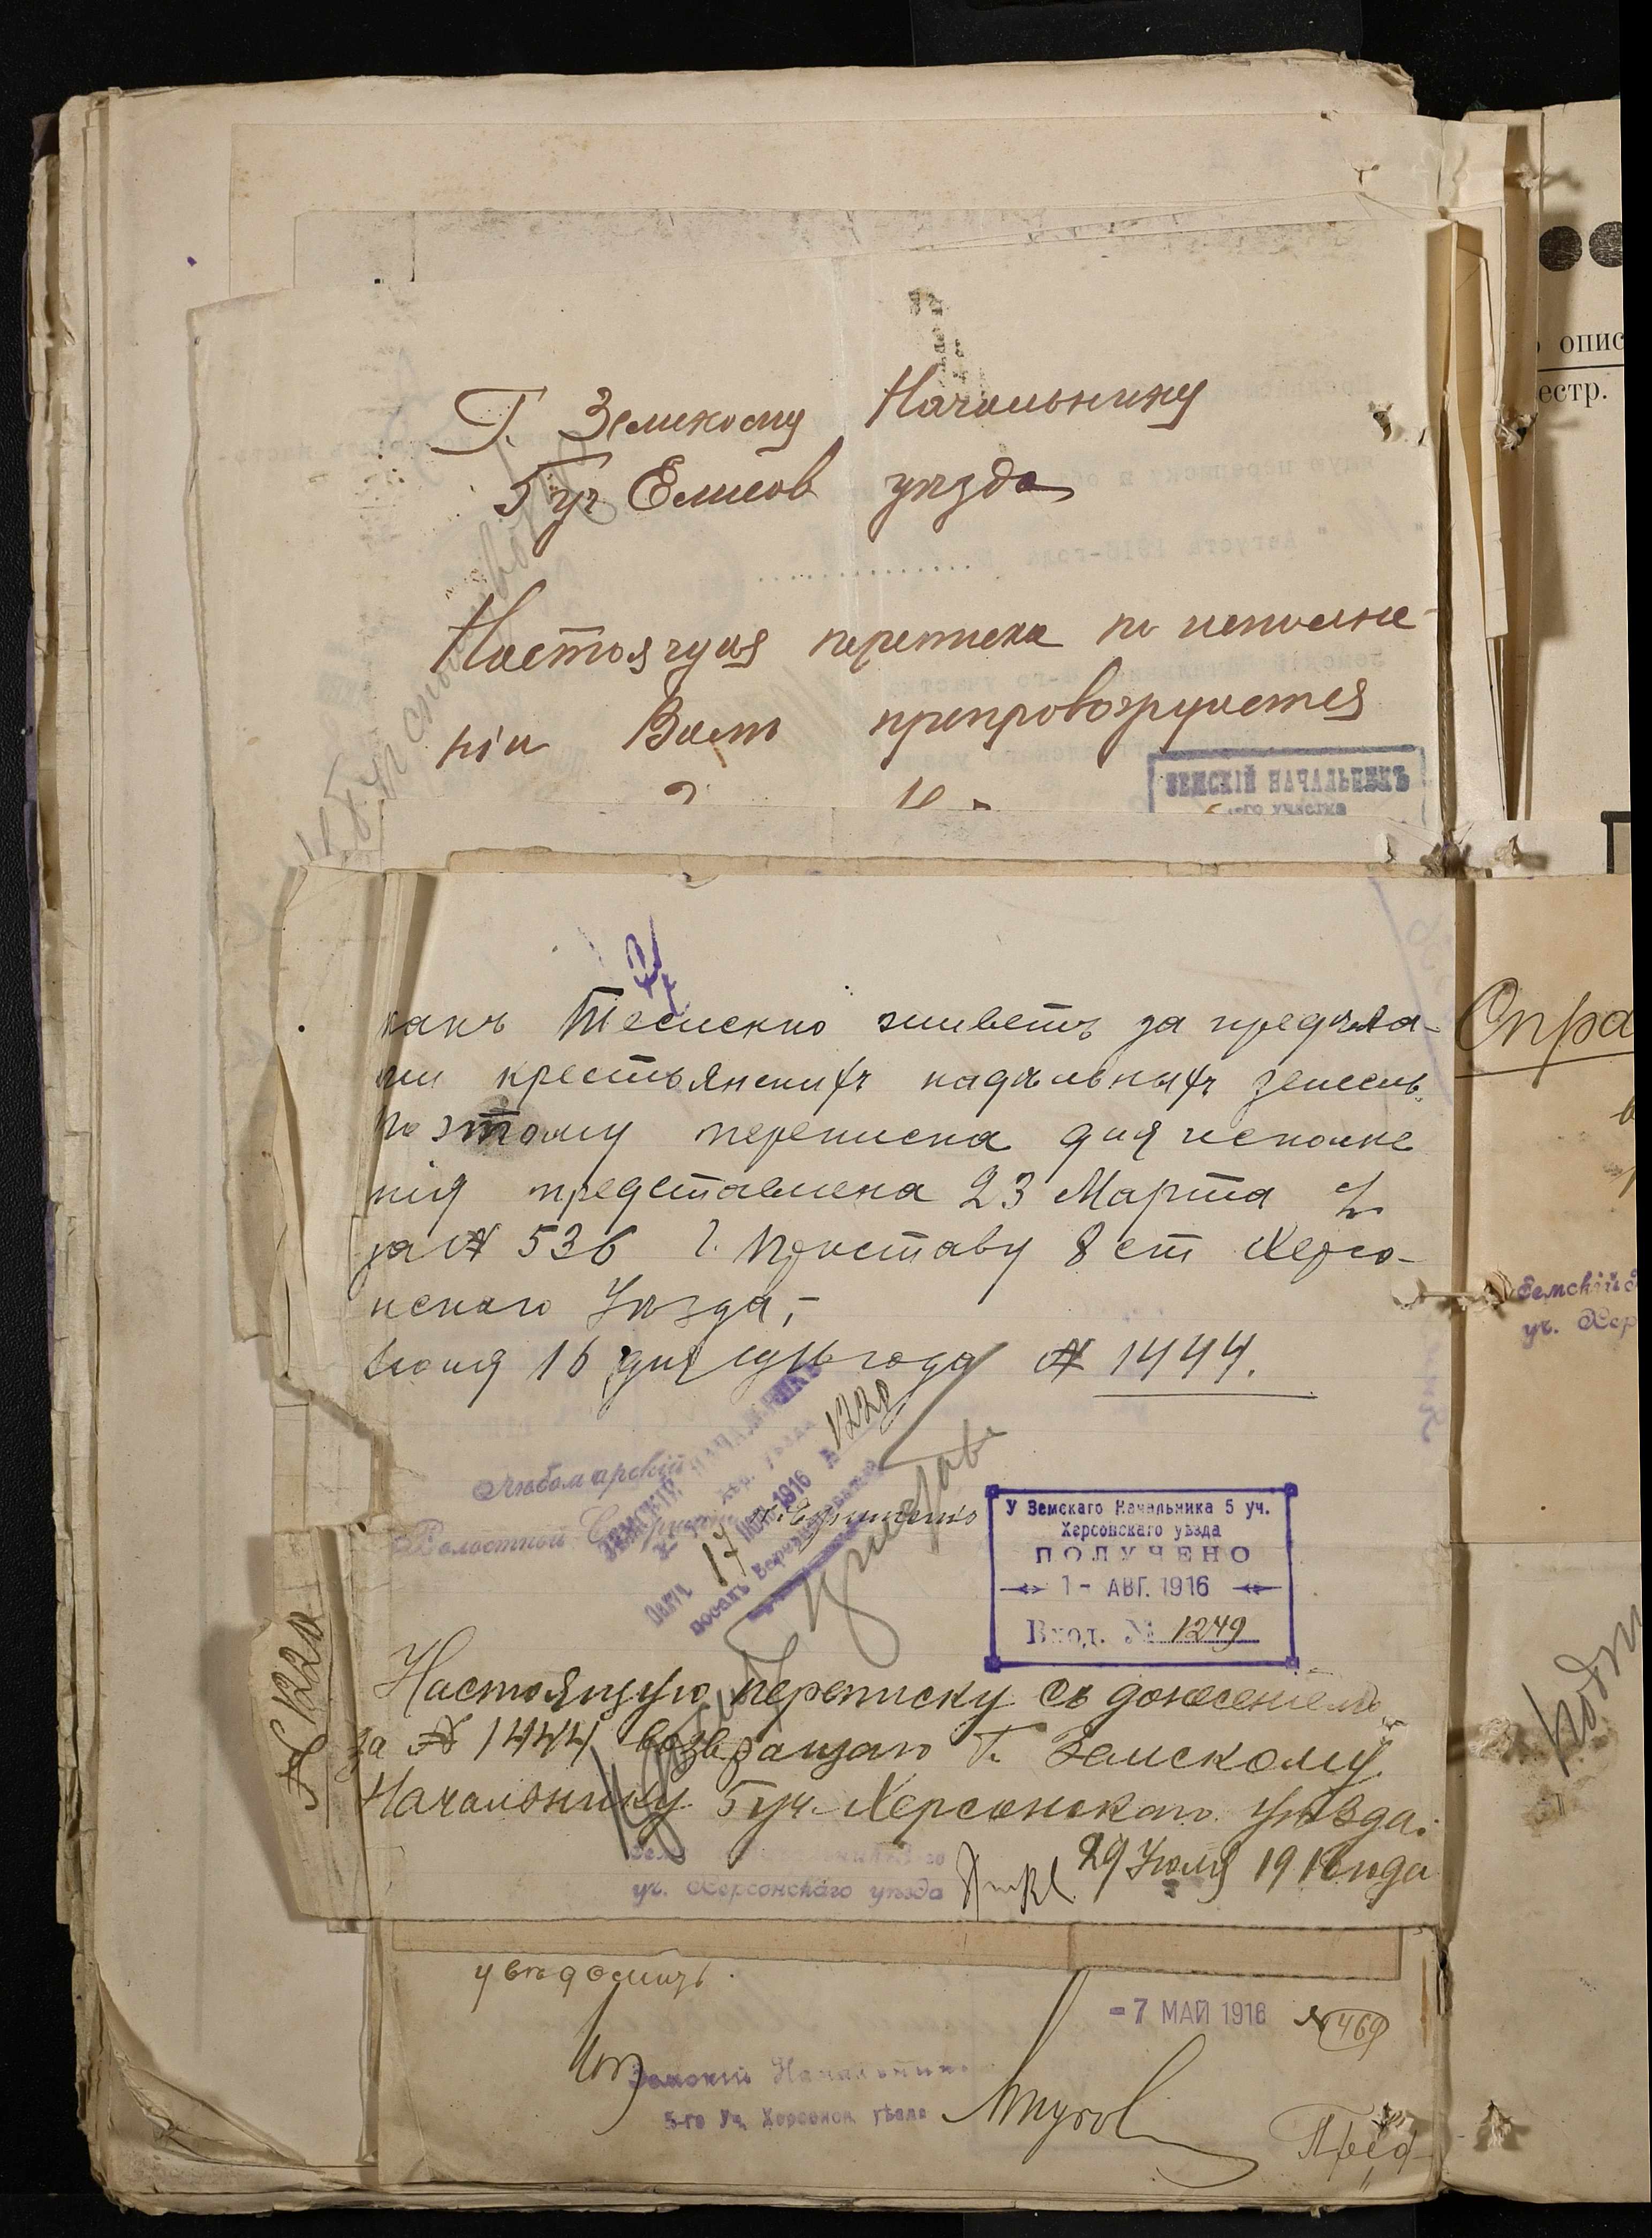 Г. Земскому Начальнику
5 уч Елисов уѣзда
Настоящая переписка по исполне-
ніи Вамъ препровождается
ЗЕМСКІЙ НАЧАЛЬНИКЪ
-го участка
какъ живетъ за предѣла-
ми крестьянскихъ надѣльныхъ земель,
поэтому переписка для исполне
нія представлена 23 Марта
за № 536 Г. Приставу 8 ст Херсо-
нскаго Уѣзда,-
Іюня 16 дня 1916 года № 1444.
Любомирскій
Волостной
ЗЕМСКІЙ НАЧАЛЬНИКЪ
17 1916 № 1220
У Земскаго Начальника 5 уч.
Херсонскаго уѣзда
ПОЛУЧЕНО
1- АВГ. 1916
Вход. № 1249
№ 1220
Настоящую переписку съ донесеніемъ
за № 1444 возвращаю Г. Земскому
Начальнику 5 уч. Херсонскаго уѣзда.
29 Іюля 1916 года
уч. Херсонскаго уѣзда
увѣдомить.
-7 МАЙ 1916 № 469
Земскій Начальникъ
5-го Уч. Херсонск. уѣзда
Пред-
опис
естр.
Спра
Земскій
уч. Хер